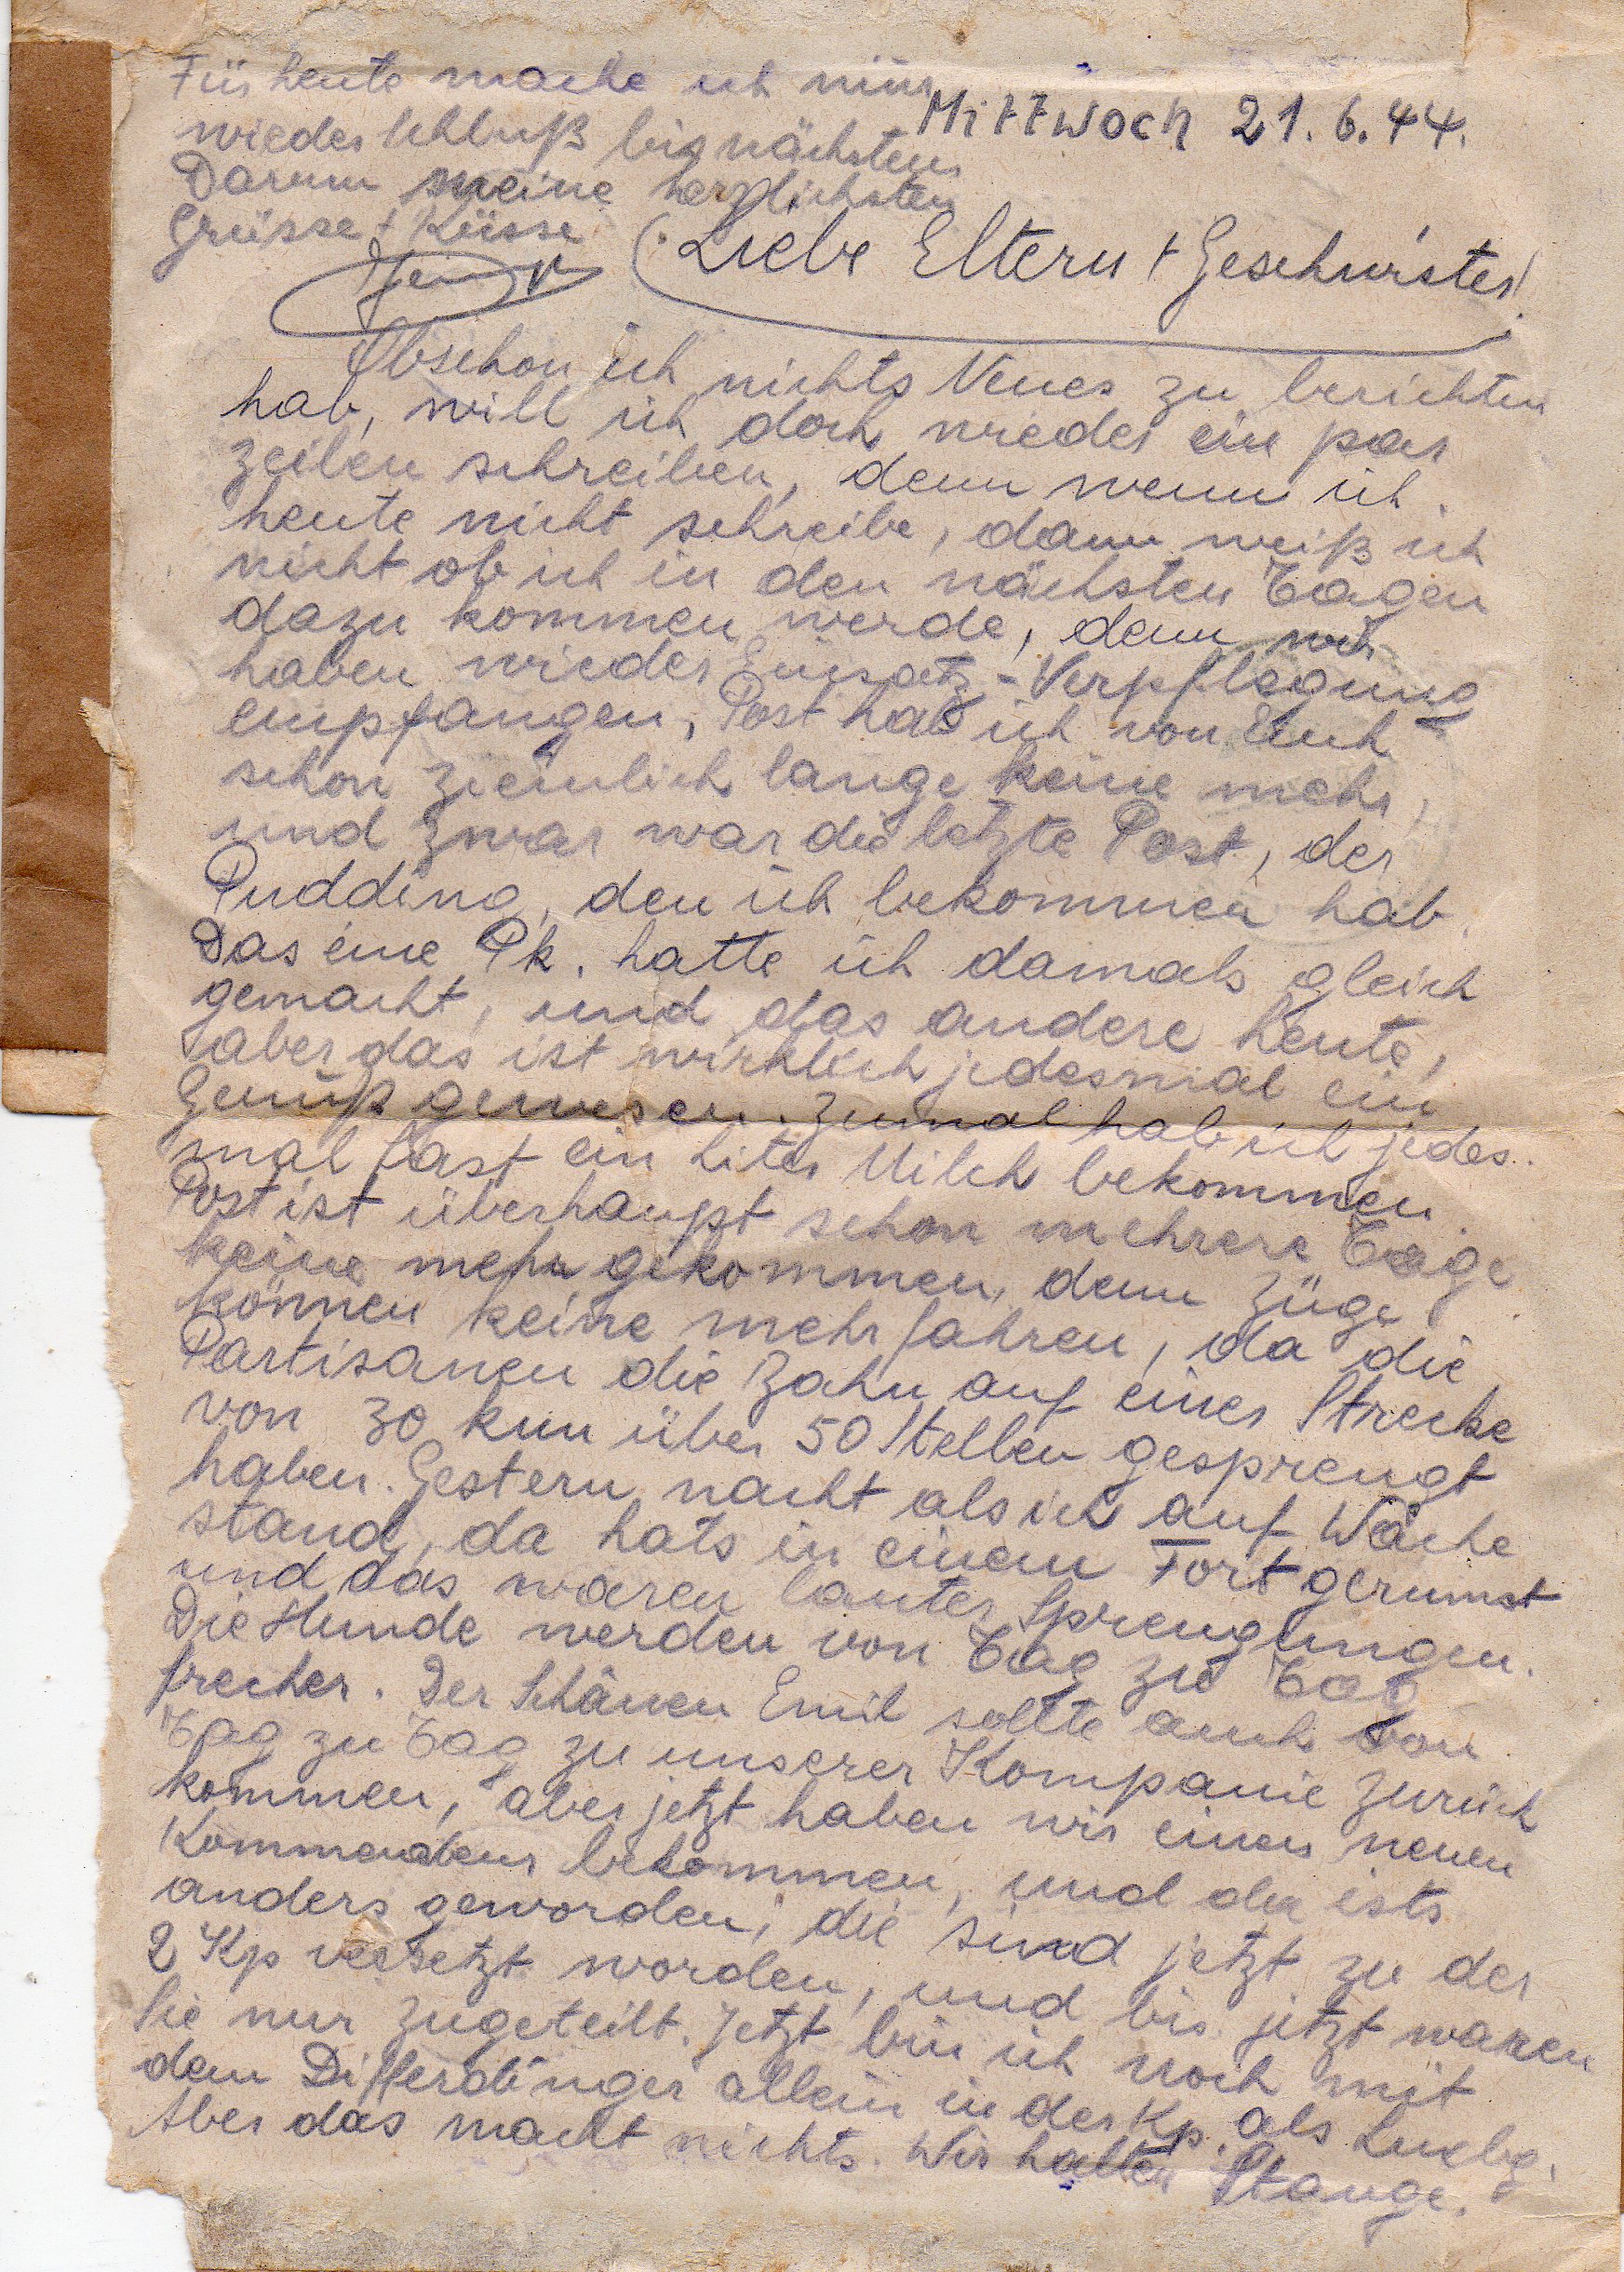 Mittwoch 21.6.44.
Liebe Eltern + Geschwister!
Obschon ich nichts Neues zu berichten
hab, will ich doch wieder ein paar
zeilen schreiben, denn wenn ich
heute nicht schreibe, dann weiß ich
nicht ob ich in den nächsten Tagen
dazu kommen werde, denn wir
haben wieder Einsatz-Verpflegung
empfangen, Post hab ich von Euch
schon ziemlich lange keine mehr,
und zwar war die letzte Post, der
Pudding, den ich bekommen hab.
Das eine Pk. hatte ich damals gleich
gemacht, und das andere heute,
aber das ist wirklich jedesmal ein
Genuß gewesen. Zumal hab ich jedes
mal fast ein Liter Milch bekommen.
Post ist überhaupt schon mehrere Tage
keine mehr gekommen, denn Züge
können keine mehr fahren, da die
Partisanen die Bahn auf einer Strecke
von 30 km über 50 Stellen gesprengt
haben. Gestern nacht als ich auf Wache
stand, da hats in einem Fort gerumst
und das waren lauter Sprengungen.
Die Hunde werden von Tag zu Tag
frecher. Der Schänen Emil sollte auch von
Tag zu Tag zu unserer Kompanie zurück
kommen, aber jetzt haben wir einen neuen
Kommandeur bekommen, und da ists
anders geworden, die sind jetzt zu der
2 Kp versetzt worden, und bis jetzt waren
Sie nur zugeteilt. Jetzt bin ich noch mit
dem Differdinger allein in der Kp. als Luxbg.
Aber das macht nichts. Wir halten Stange.
Für heute mache ich nun
wieder Schluß bis nächstens
Darum meine herzlichsten
Grüsse + Küsse